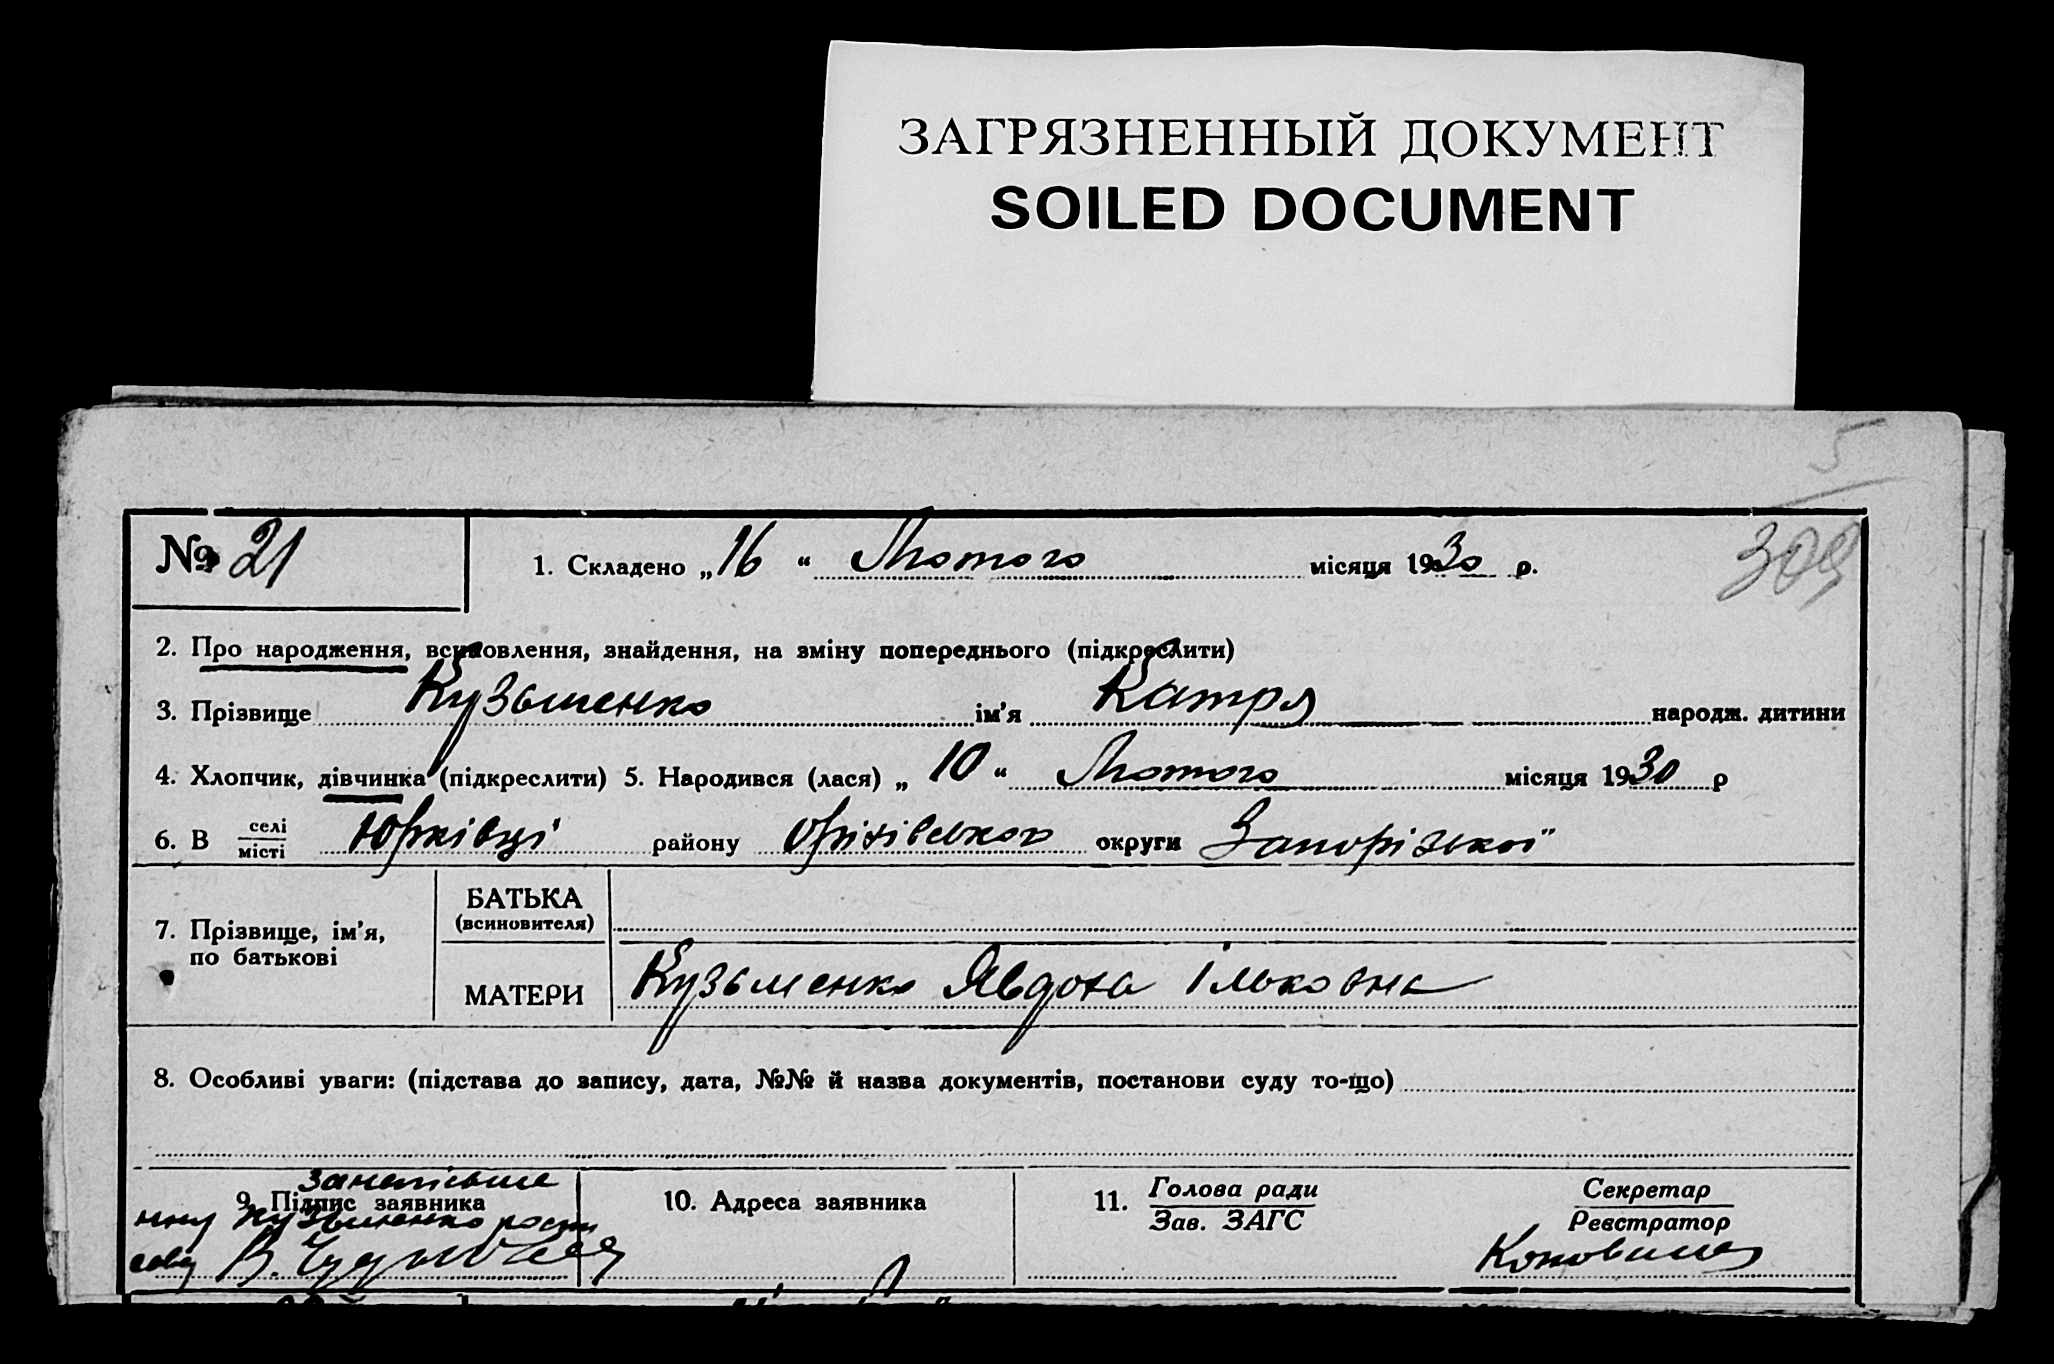 ЗАГРЯЗНЕННЫЙ ДОКУМЕНТ
SOILED DOCUMENT
5
309
№ 21
1. Складено „16“ Лютого місяця 1930 р.
2. Про народження, всиновлення, знайдення, на зміну попереднього (підкреслити)
3. Прізвище Кузьменко ім'я Катря народж. дитини
4. Хлопчик, дівчинка (підкреслити) 5. Народився (лася) „10“ Лютого місяця 1930 р
6. В селі місті Юрківці району Оріхівського округи Запорізької
7. Прізвище, ім'я, по батькові
БАТЬКА
(всиновителя)
МАТЕРИ Кузьменко Явдоха Ільковна
8. Особливі уваги: (підстава до запису, дата, №№ й назва документів, постанови суду то-що)
9. Підпис заявника
Кузьменко
В.
10. Адреса заявника
11. Голова ради
Зав. ЗАГС
Секретар
Реєстратор